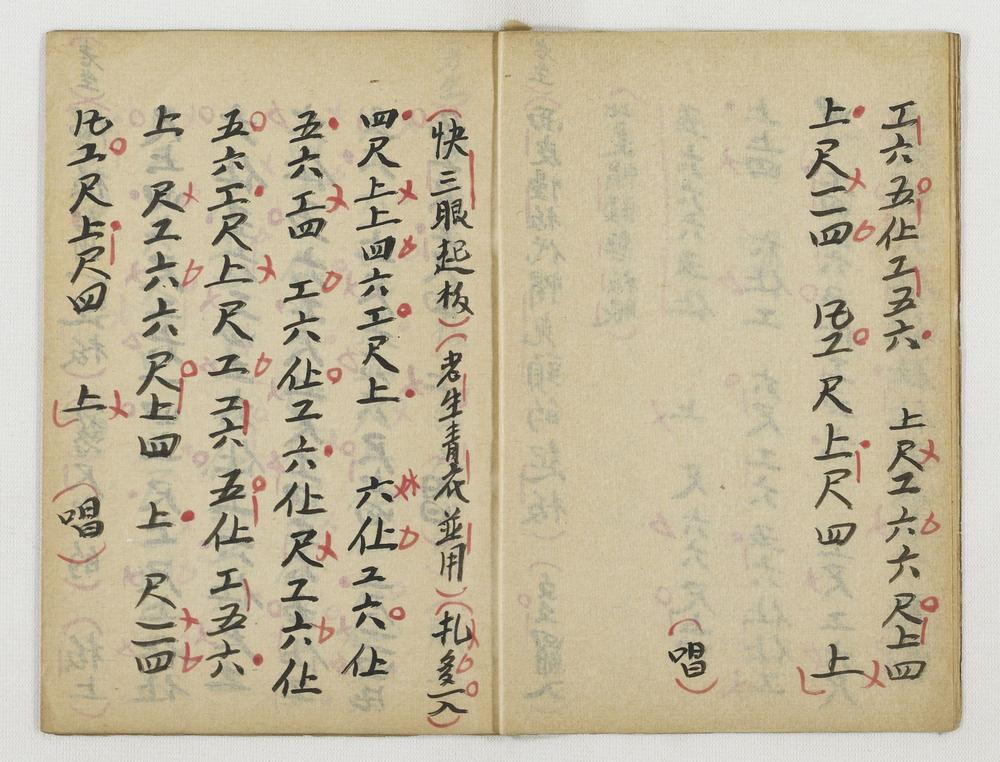 工六五仩工五六 上尺工六六尺上四
上尺一四 𠆾工尺上尺四 上
(唱)
(快三眼起板)(老生青衣並用)(扎多一入)
四尺上上四六工尺上 六仩工六仩
五六工四 工六仩工六仩尺工六仩
五六工尺上尺工工六五仩工五六
上尺工六六尺上四 上 尺一四
工尺上尺四 上 (唱)